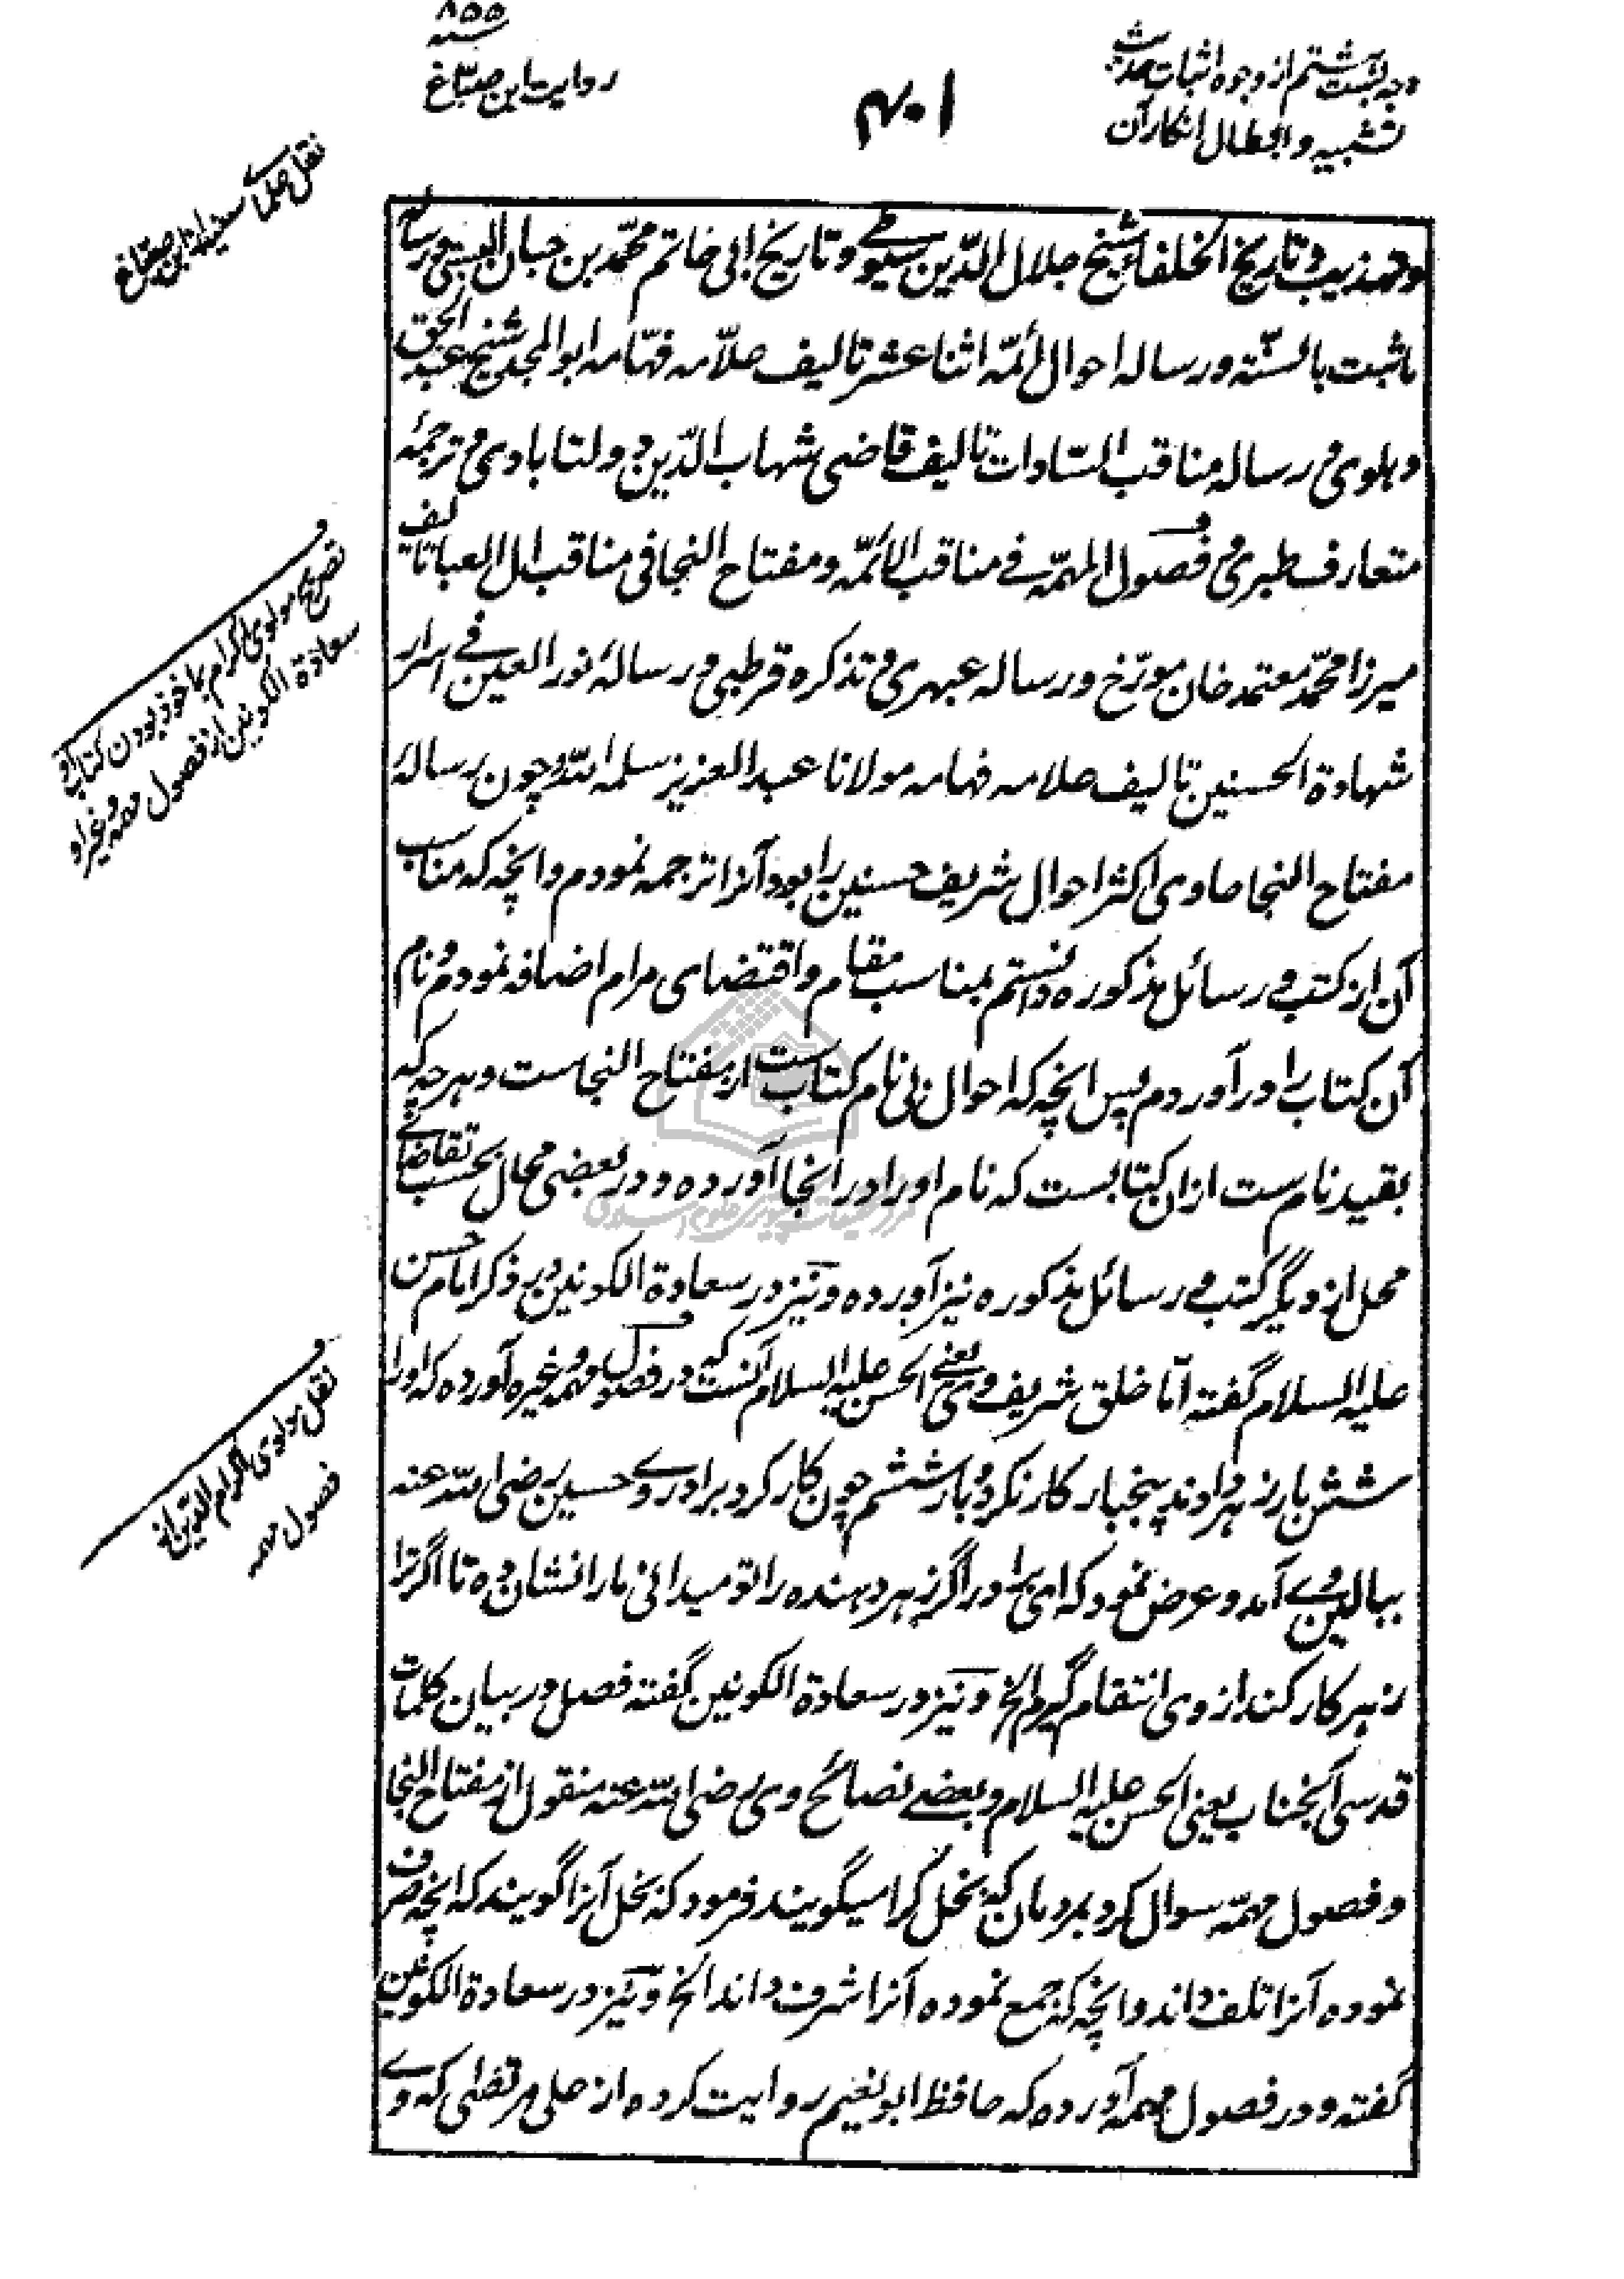 وجه بست و هشتم از وجوه اثبات حدیث
تشبیه و ابطال انکار آن
۴۰۱
سنه ۸۵۵
روایت ابن صباغ
وتهذیب و تاریخ الخلفاء شیخ جلال الدّین سیوطے و تاریخ ابی حاتم محمّد بن حبان البستی و رساله
ما ثبت بالسنّة و رساله احوال ائمّه اثنا عشر تالیف علاّمه فهّامه ابوالمجد شیخ عبد الحق
دهلوی و رساله مناقب السّادات تالیف قاضی شهاب الدّین دولتابادی و ترجمهٔ
متعارف طبری و فصول المهمّه فے مناقب الائمّه و مفتاح النجا فی مناقب ال العبا تالیف
میرزا محمّد معتمد خان مورّخ و رساله عبهری و تذکره قرطبی و رسالهٔ نور العین فے اسرار
شهادة الحسنین تالیف علامه فهامه مولانا عبد العزیز سلمه الله و چون رسالهٔ
مفتاح النجا حاوی اکثر احوال شریف حسنین را بود آنرا ترجمه نمودم و انچه که مناسب
آن از کتب و رسائل مذکوره دانستم بمناسب مقام و اقتضای مرام اضافه نمودم و نام
آن کتاب را در آوردم پس انچه که احوال بی نام کتاب ست از مفتاح النجاست و هرچه که
بقید نام ست ازان کتابست که نام او را در انجا آورده و در بعضی محال بحسب تقاضائے
محل از دیگر کتب و رسائل مذکوره نیز آورده و نیز در سعادة الکونین در ذکر امام حسن
علیه السلام گفته امّا خلق شریف وی یعنی الحسن علیه السلام آنست که در فصول مهمه و غیره آورده که او را
شش بار زهر دادند پنجبار کار نکرد و بار ششم چون کار کرد برادر وے حسین رضی الله عنه
ببالین وے آمد و عرض نمود که ای برادر اگر زهر دهنده را تو میدانی ما را نشان ده تا اگر ترا
زهر کار کند از وی انتقام گیرم الخ و نیز در سعادة الکونین گفته فصل در بیان کلمات
قدسی آنجناب یعنی الحسن علیه السلام و بعضے نصائح وی رضی الله عنه منقول از مفتاح النجا
و فصول مهمّه سوال کرد مردمان که بخل کرا میگویند فرمود که بخل آنرا گویند که انچه صرف
نموده آنرا تلف داند و انچه که جمع نموده آنرا شرف داند الخ و نیز در سعادة الکونین
گفته و در فصول مهمه آورده که حافظ ابو نعیم روایت کرده از علی مرتضی که وے
نقل کلمات سعید ابن صباغ
تصریح مولوی اکرام بماخوذ بودن کتاب او
سعادة الکونین از فصول مهمه و غیر او
نقل مولوی اکرام الدّین از
فصول مهمه